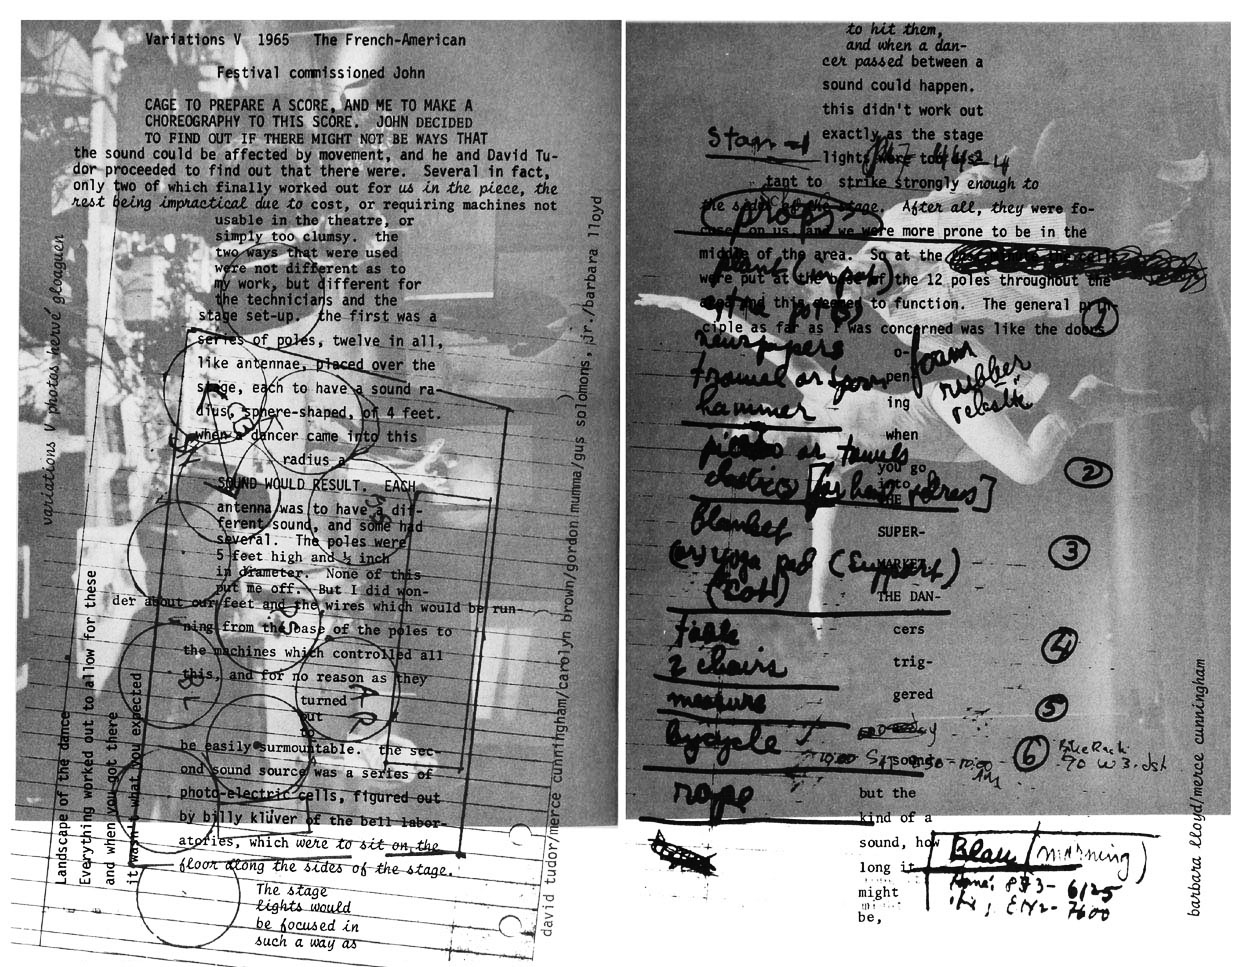 Variations V 1965 The French-American
Festival commissioned John
CAGE TO PREPARE A SCORE, AND ME TO MAKE A
CHOREOGRAPHY TO THIS SCORE. JOHN DECIDED
TO FIND OUT IF THERE MIGHT NOT BE WAYS THAT
the sound could be affected by movement, and he and David Tu-
dor proceeded to find out that there were. Several in fact,
only two of which finally worked out for us in the piece, the
rest being impractical due to cost, or requiring machines not
usable in the theatre, or
simply too clumsy. the
two ways that were used
were not different as to
my work, but different for
the technicians and the
stage set-up. the first was a
series of poles, twelve in all,
like antennae, placed over the
stage, each to have a sound ra-
dius, sphere-shaped, of 4 feet.
when a dancer came into this
radius a
SOUND WOULD RESULT. EACH
antenna was to have a dif-
ferent sound, and some had
several. The poles were
5 feet high and ½ inch
in diameter. None of this
put me off. But I did won-
der about our feet and the wires which would be run-
ning from the base of the poles to
the machines which controlled all
this, and for no reason as they
turned
out
to
be easily surmountable. the sec-
ond sound source was a series of
photo-electric cells, figured out
by billy kluver of the bell labor-
atories, which were to sit on the
floor along the sides of the stage.
The stage
lights would
be focused in
such a way as
BL
AR
variations V photos hervé gloaguen
Landscape of the dance
Everything worked out to allow for these
and when you got there
it wasn't what you expected
david tudor/merce cunningham/carolyn brown/gordon mumma/gus solomons, jr./barbara lloyd
to hit them,
and when a dan-
cer passed between a
sound could happen.
this didn't work out
exactly as the stage
lights were too
tant to strike strongly enough to
the sides of the stage. After all, they were fo-
cused on us, and we were more prone to be in the
middle of the area. So at the
were put at the base of the 12 poles throughout the
area and this seemed to function. The general prin-
ciple as far as I was concerned was like the doors
o-
pen
ing
when
you go
into
THE
SUPER-
MARKET.
THE DAN-
cers
trig-
gered
sound
but the
kind of a
sound, how
long it
might
be,
(props)
plant (in pot)
newspapers
hammer
foam
rubber
1
elastic
2
Blanket
(or) yoga pad (support)
(cot)
3
table
2 chairs
4
measure
5
bycycle
6
Bike Rack
rope
Blau (morning)
Home: 873-6125
EN2-7600
barbara lloyd/merce cunningham